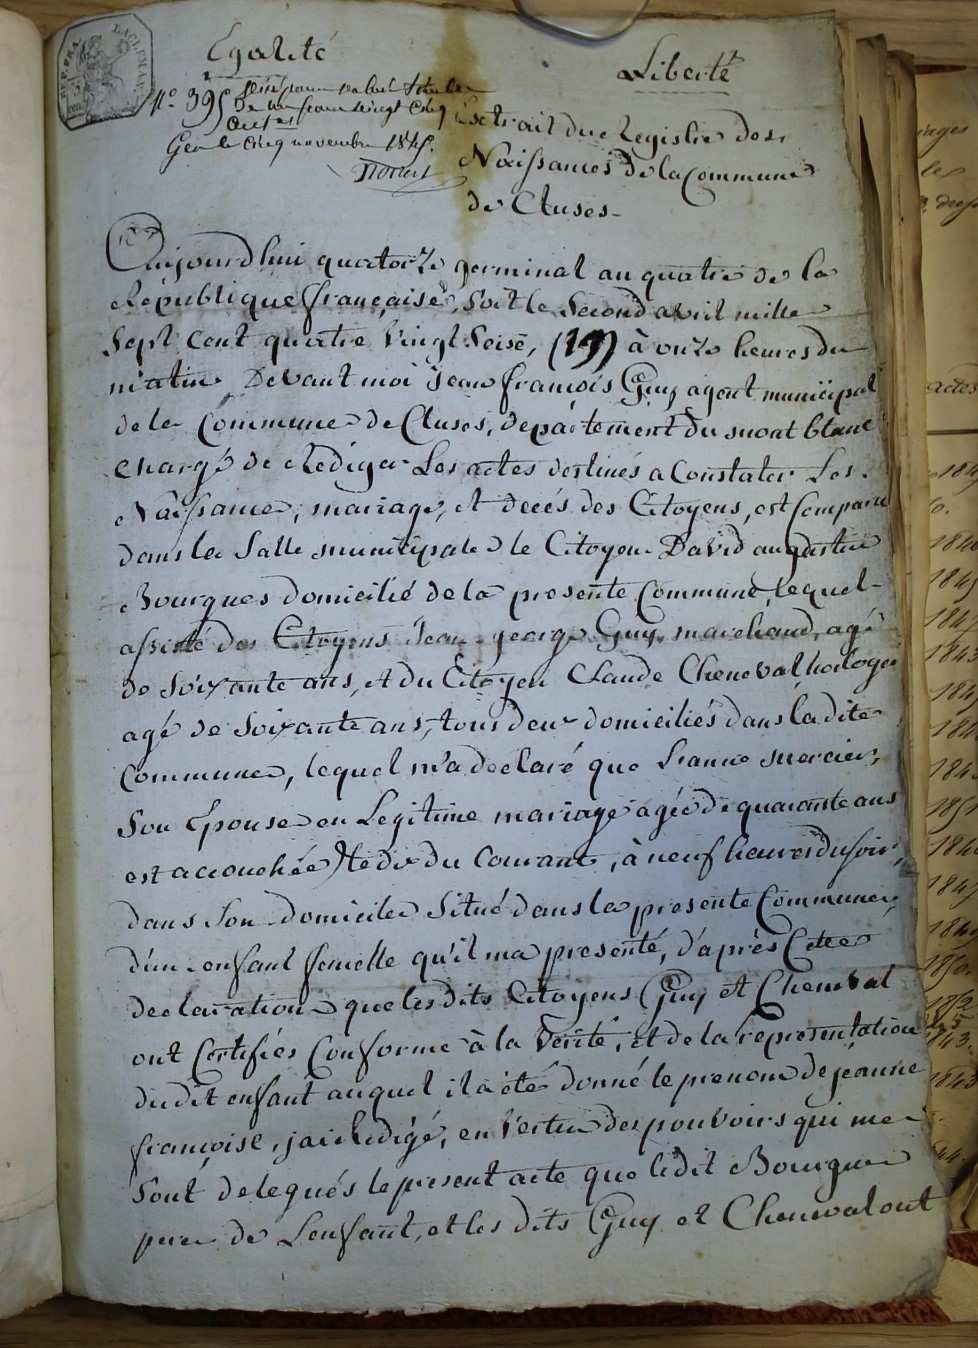 Egalité
Liberté
N.° 395
De un franc vingt cinq
Cent.es
Gen le cinq novembre 1845.
Extrait du Registre des
Naissances de la Commune
de Cluses -
Aujourdhui quatorze germinal an quatre de la
République française, soit le second avril mille
Sept cent quatre vingt Seise, à onze heures du
matin Devant moi jean françois Guy agent municipal
de la Commune de Cluses, departement du mont blanc
chargé de Rédiger Les actes destinés a Constater Les
Naissance, mariage, et decés des Citoyens, est Comparu
dans la Salle municipale le Citoyen David augustin
Bourgues domicilié de la presente Commune, lequel
assisté des Citoyens Jean george Guy, marchand, agé
de Soixante ans, et du Citoyen Claude Cheneval horloger
agé de Soixante ans, tous deux domiciliés dans la dite
Commune, lequel m'a déclaré que mercier,
Son Epouse en Legitime mariage agée de quarante ans
est accouchée du Courant, à neuf heures du soir,
dans Son domicile Situé dans la presente Commune,
d'un enfant femelle qu'il ma presenté, d'après Cette
declaration que lesdits Citoyens Guy et Cheneval
ont Certifiés Conforme à la Vérité, et de la représentation
dudit enfant auquel il a été donné le prenom de jeanne
françoise, jai Rédigé, en Vertu des pouvoirs qui me
Sont delegués le present acte que ledit Bourgues
pere de Lenfant, et les dits Guy et Cheneval ont